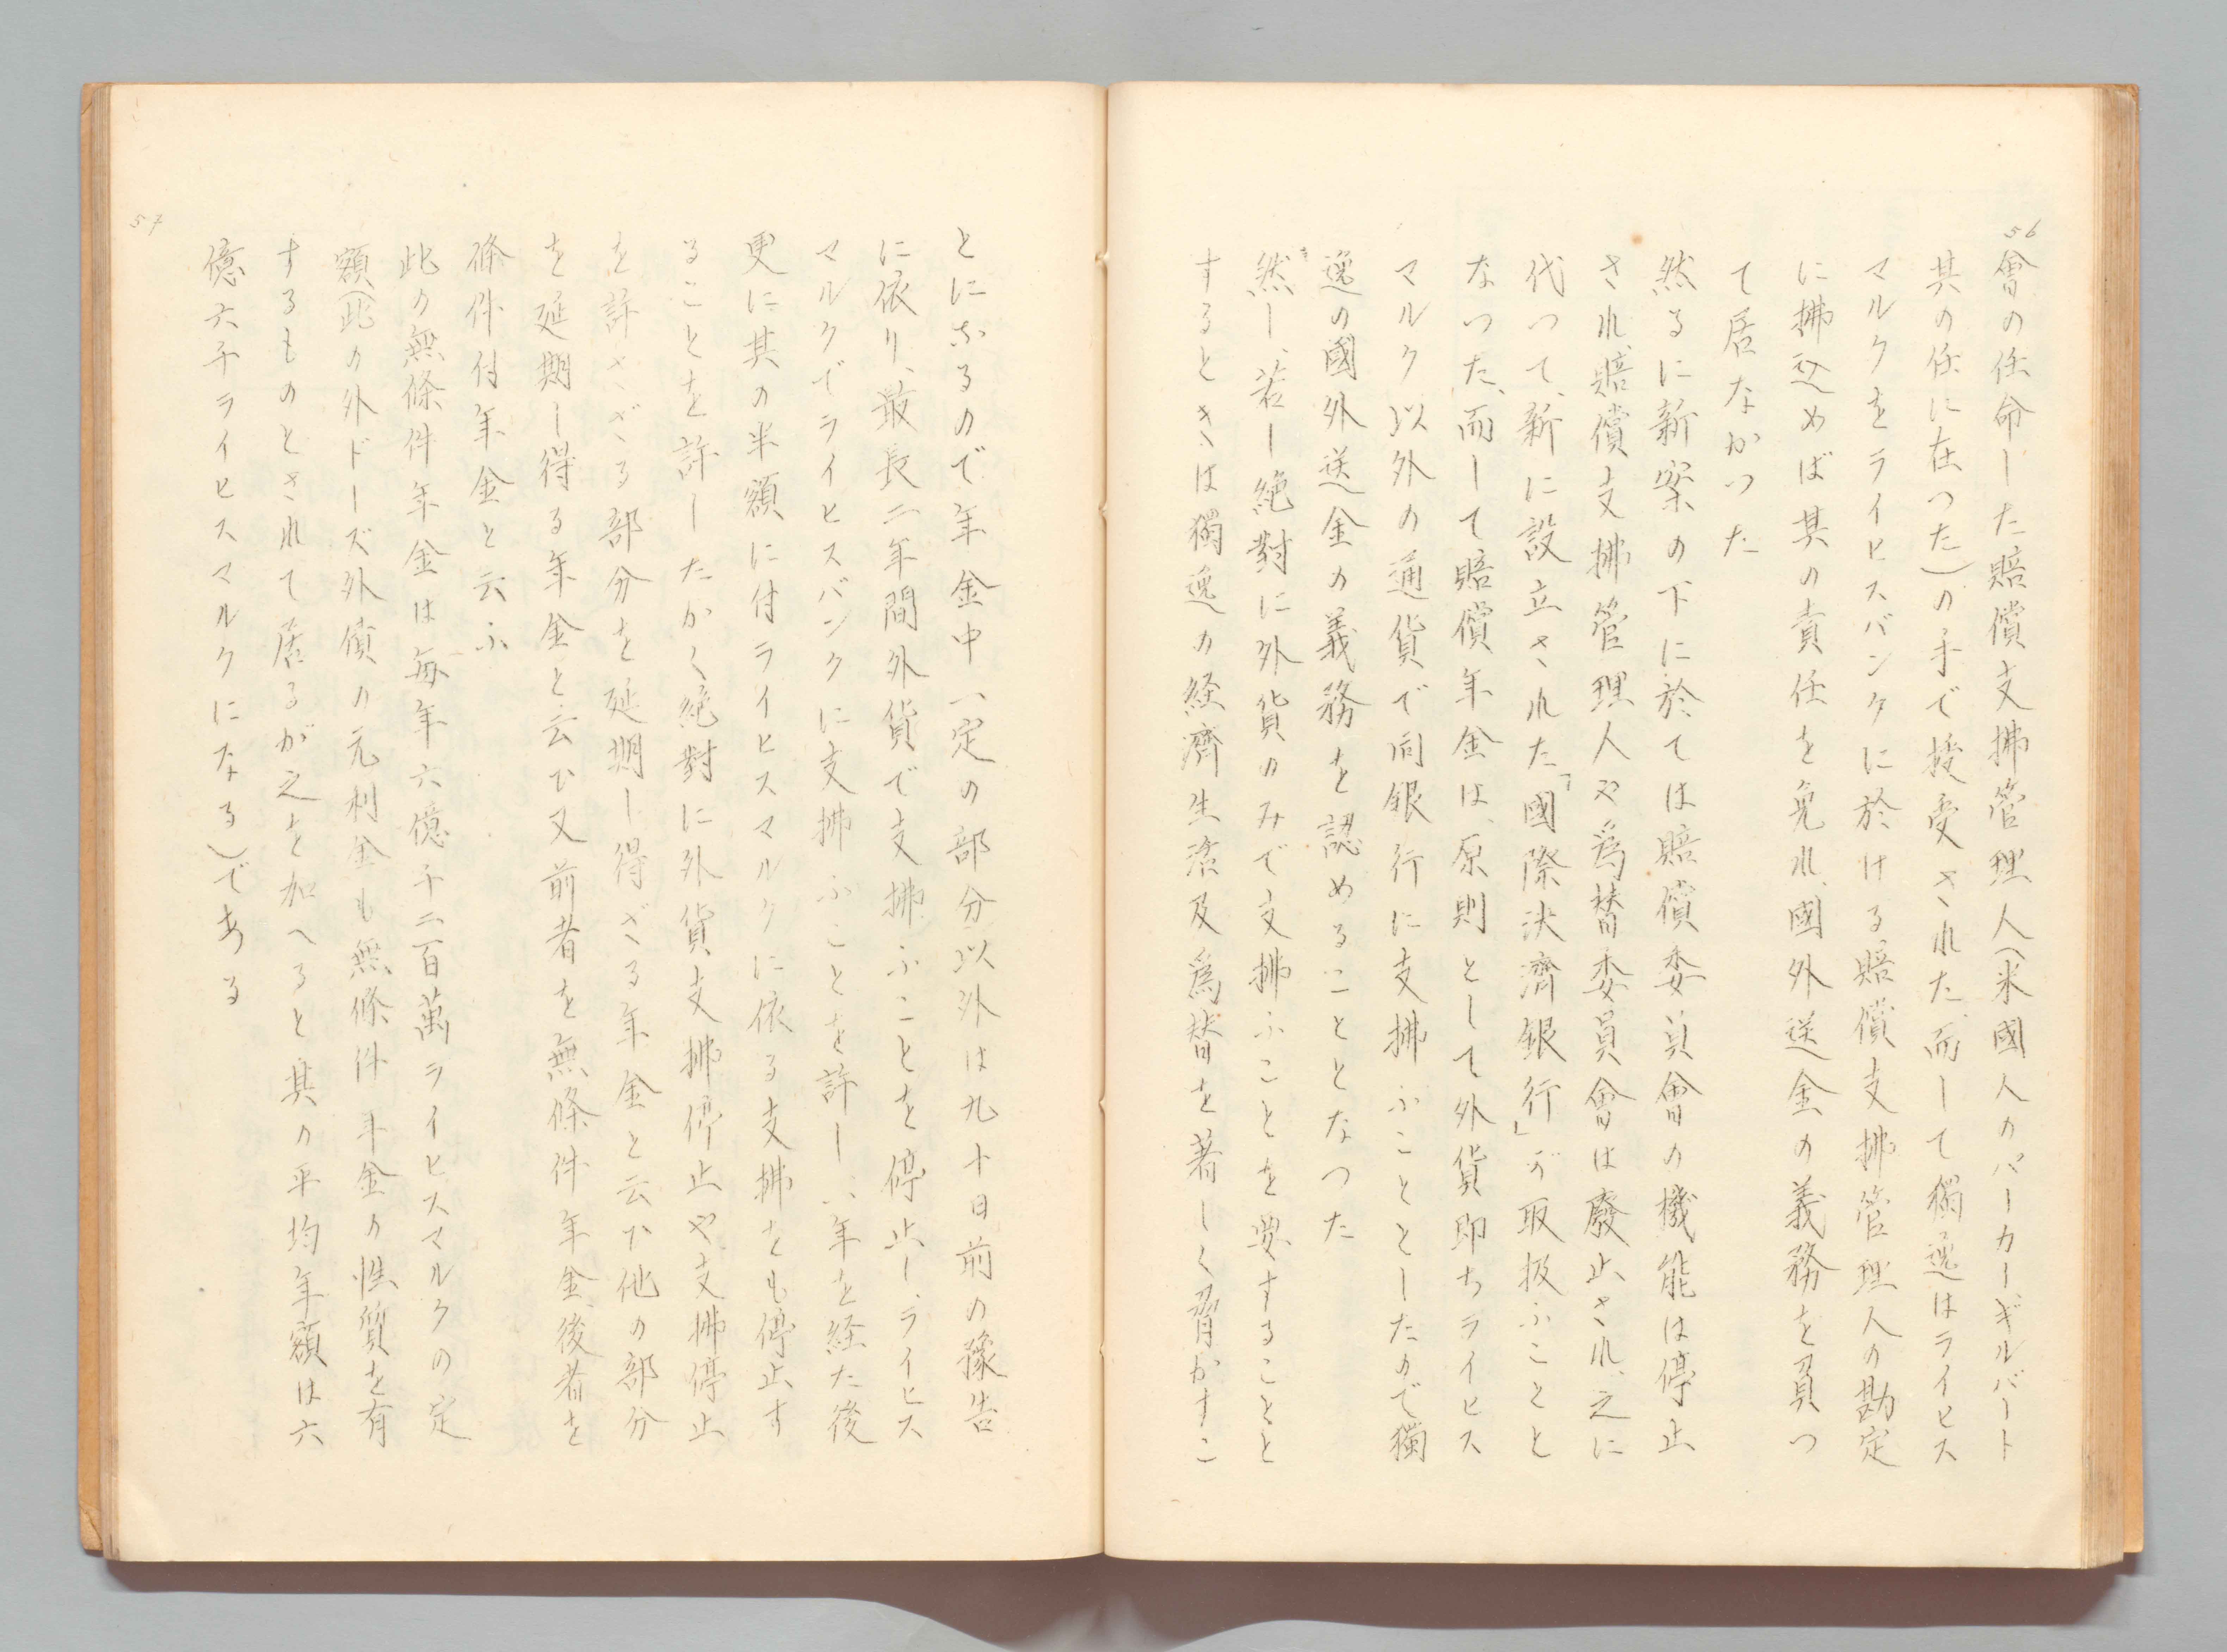 56
會の任命した賠償支拂管理人(米國人のパーカー、ギルバート
其の任に在つた)の手で授受された、而して獨逸はライヒス
マルクをライヒスバンクに於ける賠償支拂管理人の勘定
に拂込めば其の責任を免れ、國外送金の義務を負つ
て居なかつた
然るに新案の下に於ては賠償委員會の機能は停止
され、賠償支拂管理人や爲替委員會は廢止され、之に
代つて、新に設立された「國際決濟銀行」が取扱ふことと
なつた、而して賠償年金は、原則として外貨即ちライヒス
マルク以外の通貨で同銀行に支拂ふこととしたので獨
逸の國外送金の義務を認めることとなつた
然し、若し絶對に外貨のみで支拂ふことを要すること
するときは獨逸の経濟生活及爲替を著しく脅かすこ
とになるので年金中一定の部分以外は九十日前の豫告
に依り、最長二年間外貨で支拂ふことを停止し、ライヒス
マルクでライヒスバンクに支拂ふことを許し、一年を経た後
更に其の半額に付ライヒスマルクに依る支拂をも停止す
ることを許したかく絶對に外貨支拂停止や支拂停止
を許さざる部分を延期し得ざる年金と云ひ他の部分
を延期し得る年金と云ひ又前者を無條件年金、後者を
條件付年金と云ふ
此の無條件年金は毎年六億千二百萬ライヒスマルクの定
額(此の外ドーズ外債の元利金も無條件年金の性質を有
するものとされて居るが之を加へると其の平均年額は六
億六千ライヒスマルクになる)である
57